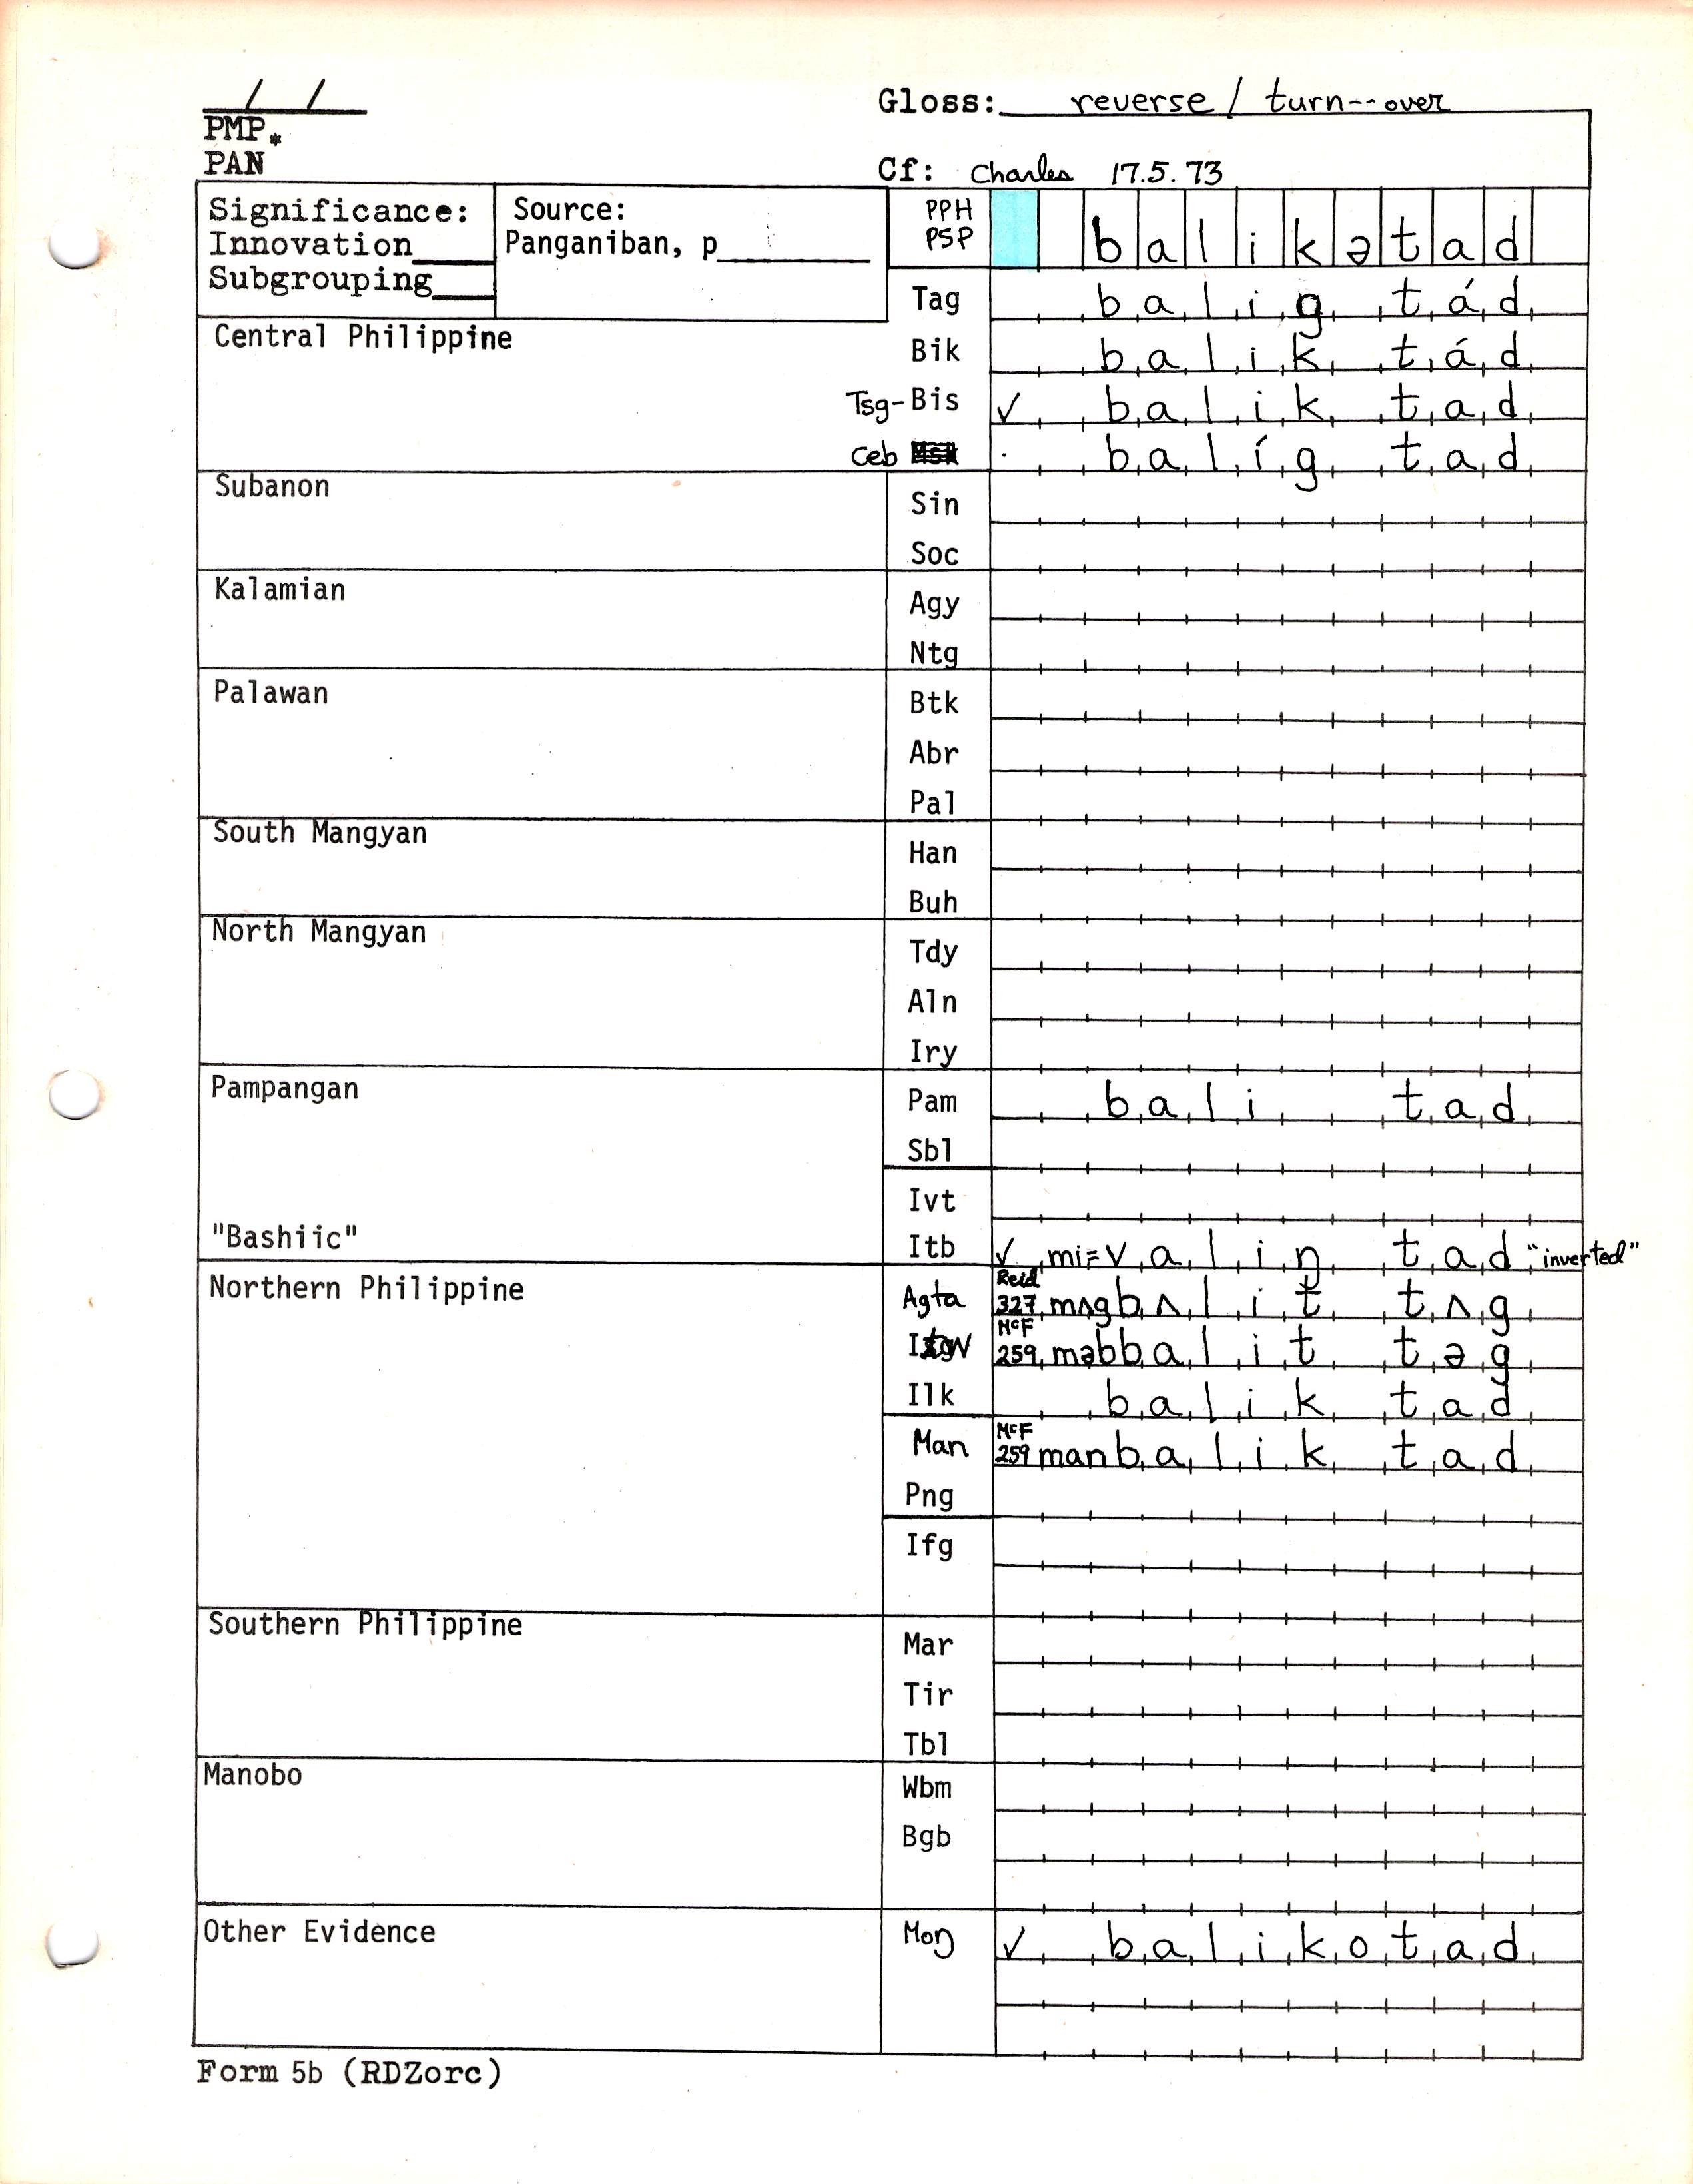 / /
Gloss: reverse / turn--over
PMP *
PAN
Cf: Charles 17.5.73
Significance:
Innovation
Subgrouping
Source:
Panganiban, p
PPH
PSP
balikətad
Tag baligtád
Central Philippine
Bik baliktád
Tsg-Bis ✓ baliktad
Ceb balígtad
Subanon
Sin
Soc
Kalamian
Agy
Ntg
Palawan
Btk
Abr
Pal
South Mangyan
Han
Buh
North Mangyan
Tdy
Aln
Iry
Pampangan
Pam bali tad
Sbl
Ivt
"Bashiic"
Itb ✓ mi=valin tad "inverted"
Northern Philippine
Agta Reid 327 mʌgbʌlit tʌg
McF 259 məbbalit təg
Ilk balik tad
Man McF 259 manbalik tad
Png
Ifg
Southern Philippine
Mar
Tir
Tbl
Manobo
Wbm
Bgb
Other Evidence
Moŋ ✓ balikotad
Form 5b (RDZorc)